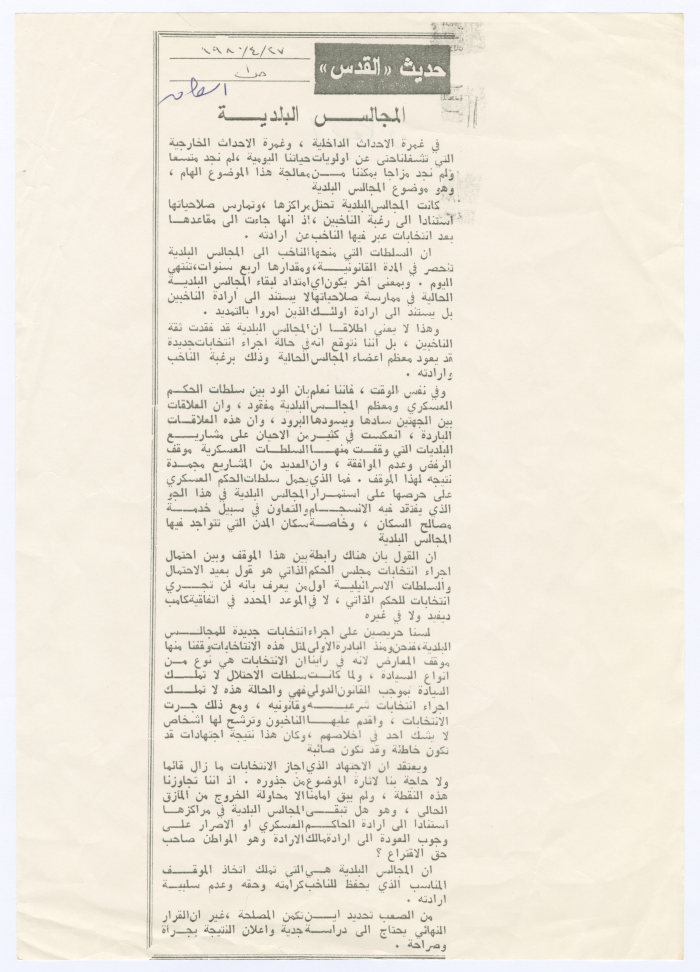 ١٩٨٠/٤/٢٧
ص١
حديث «القدس»
المجالس البلدية
في غمرة الاحداث الداخلية ، وغمرة الاحداث الخارجية
التي تشغلنا حتى عن اولويات حياتنا اليومية ، لم نجد متسعا
ولم نجد مزاجا يمكننا من معالجة هذا الموضوع الهام ،
وهو موضوع المجالس البلدية
كانت المجالس البلدية تحتل مراكزها ، وتمارس صلاحياتها
استنادا الى رغبة الناخبين ، اذ انها جاءت الى مقاعدها
بعد انتخابات عبر فيها الناخب عن ارادته .
ان السلطات التي منحها الناخب الى المجالس البلدية
تنحصر في المدة القانونية ، ومقدارها اربع سنوات ، تنتهي
اليوم . وبمعنى اخر يكون اي امتداد لبقاء المجالس البلدية
الحالية في ممارسة صلاحياتها لا يستند الى ارادة الناخبين
بل يستند الى ارادة اولئك الذين امروا بالتمديد .
وهذا لا يعني اطلاقا ان المجالس البلدية قد فقدت ثقة
الناخبين ، بل اننا نتوقع انه في حالة اجراء انتخابات جديدة
قد يعود معظم اعضاء المجالس الحالية وذلك برغبة الناخب
وارادته .
وفي نفس الوقت ، فاننا نعلم بان الود بين سلطات الحكم
العسكري ومعظم المجالس البلدية مفقود ، وان العلاقات
بين الجهتين سادها ويسودها البرود ، وان هذه العلاقات
الباردة ، انعكست في كثير من الاحيان على مشاريع
البلديات التي وقفت منها السلطات العسكرية موقف
الرفض وعدم الموافقة ، وان العديد من المشاريع مجمدة
نتيجه لهذا الموقف . فما الذي يحمل سلطات الحكم العسكري
على حرصها على استمرار المجالس البلدية في هذا الجو
الذي يفتقد فيه الانسجام والتعاون في سبيل خدمة
مصالح السكان ، وخاصة سكان المدن التي تتواجد فيها
المجالس البلدية
ان القول بان هناك رابطة بين هذا الموقف وبين احتمال
اجراء انتخابات مجلس الحكم الذاتي هو قول بعيد الاحتمال
والسلطات الاسرائيلية اول من يعرف بانه لن تجري
انتخابات للحكم الذاتي ، لا في الموعد المحدد في اتفاقية كامب
ديفيد ولا في غيره
لسنا حريصين على اجراء انتخابات جديدة للمجالس
البلدية ، فنحن ومنذ البادرة الاولى لمثل هذه الانتاخابات وقفنا منها
موقف المعارض لانه في راينا ان الانتخابات هي نوع من
انواع السيادة ، ولما كانت سلطات الاحتلال لا تملك
السيادة بموجب القانون الدولي فهي والحالة هذه لا تملك
اجراء انتخابات شرعيه وقانونيه ، ومع ذلك جرت
الانتخابات ، واقدم عليها الناخبون وترشح لها اشخاص
لا يشك احد في اخلاصهم ، وكان هذا نتيجة اجتهادات قد
تكون خاطئة وقد تكون صائبة
ويعتقد ان الاجتهاد الذي اجاز الانتخابات ما زال قائما
ولا حاجة بنا لاثارة الموضوع من جذوره . اذ اننا تجاوزنا
هذه النقطة ، ولم يبق امامنا الا محاولة الخروج من المأزق
الحالي ، وهو هل تبقى المجالس البلدية في مراكزها
استنادا الى ارادة الحاكم العسكري او الاصرار على
وجوب العودة الى ارادة مالك الارادة وهو المواطن صاحب
حق الاقتراع ؟
ان المجالس البلدية هي التي تملك اتخاذ الموقف
المناسب الذي يحفظ للناخب كرامته وحقه وعدم سلبية
ارادته .
من الصعب تحديد اين تكمن المصلحة ، غير ان القرار
النهائي يحتاج الى دراسة جدية واعلان النتيجة بجرأة
وصراحة .